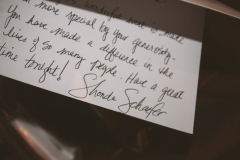 more special by your generosity.
You have made a difference in the
lives of so many people. Have a great
time tonight!
Shonda Schaefer